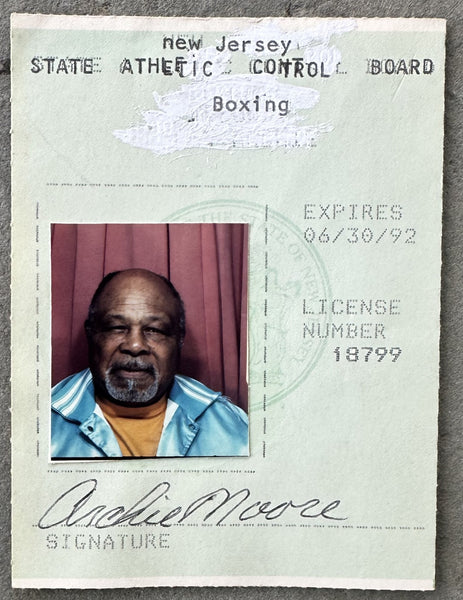 new Jersey
STATE ATHLETIC CONTROL BOARD
Boxing
EXPIRES
06/30/92
LICENSE
NUMBER
18799
THE STATE OF NEW
Archie Moore
SIGNATURE